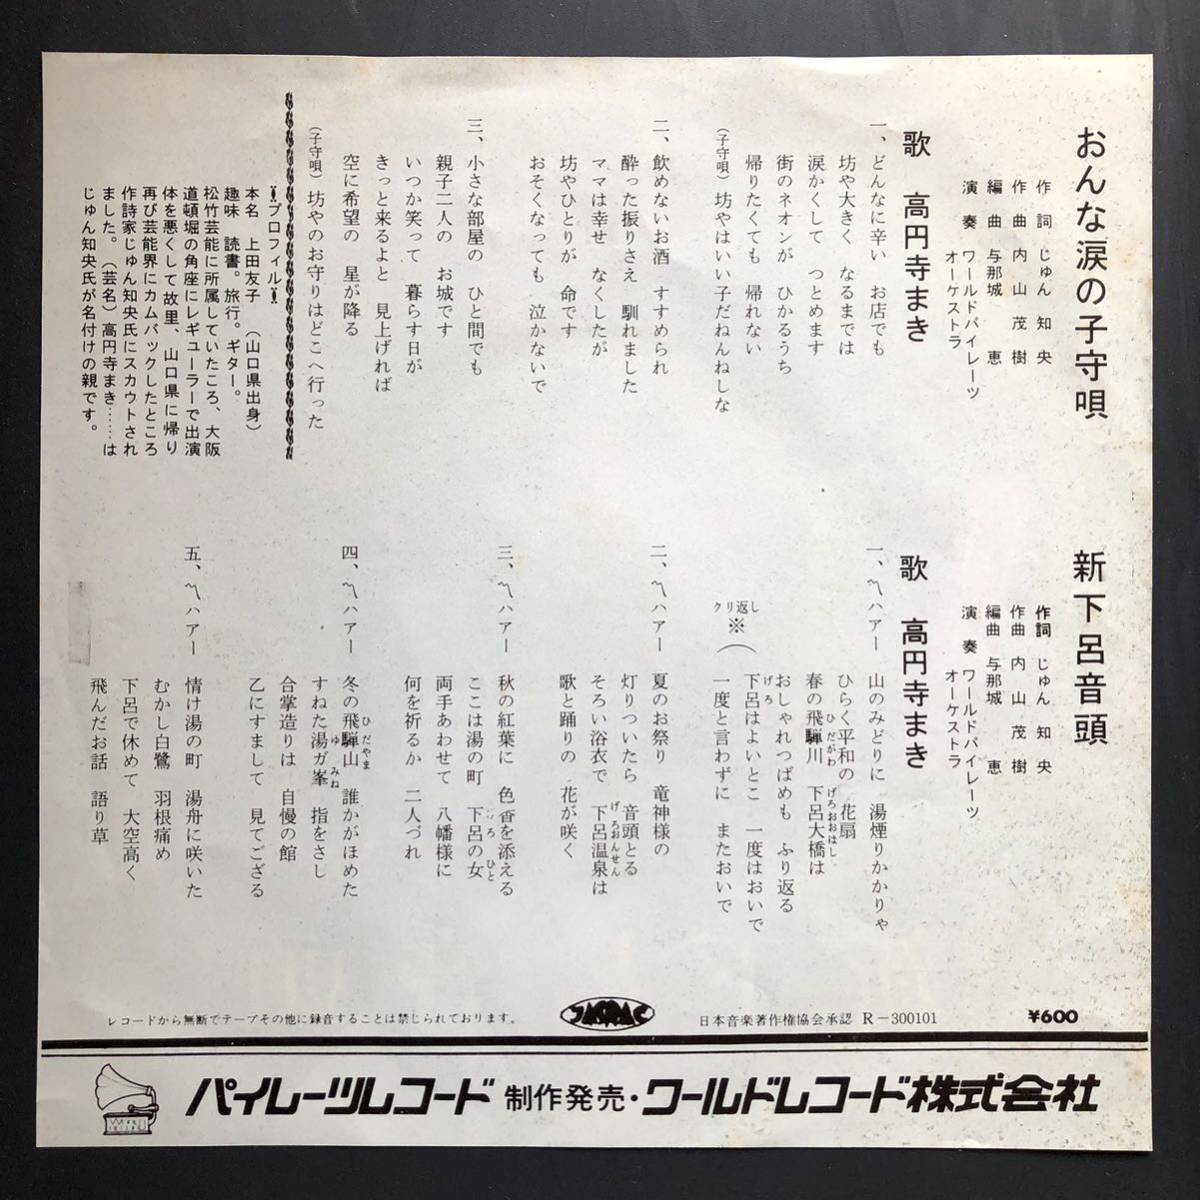 おんな涙の子守唄
作詞 じゅん 知央
作曲 内山茂樹
編曲 与那城 恵
演奏 ワールドパイレーツ
オーケストラ
歌 高円寺まき
一、どんなに辛い お店でも
坊や大きく なるまでは
涙かくして つとめます
街のネオンが ひかるうち
帰りたくても 帰れない
(子守唄) 坊やはいい子だねんねしな
二、飲めないお酒 すすめられ
酔った振りさえ 馴れました
ママは幸せ なくしたが
坊やひとりが 命です
おそくなっても 泣かないで
三、小さな部屋の ひと間でも
親子二人の お城です
いつか笑って 暮らす日が
きっと来るよと 見上げれば
空に希望の 星が降る
(子守唄) 坊やのお守りはどこへ行った
プロフィル
本名 上田友子 (山口県出身)
趣味 読書。旅行。ギター。
松竹芸能に所属していたころ、大阪
道頓堀の角座にレギューラーで出演
体を悪くして故里、山口県に帰り
再び芸能界にカムバックしたところ
作詩家じゅん知央氏にスカウトされ
ました。(芸名)高円寺まき……は
じゅん知央氏が名付けの親です。
新下呂音頭
作詞 じゅん 知央
作曲 内山茂樹
編曲 与那城 恵
演奏 ワールドパイレーツ
オーケストラ
歌 高円寺まき
一、〽ハアー 山のみどりに 湯煙りかかりゃ
ひらく平和の 花扇
春の飛騨川 下呂大橋は
ひだがわ げろおおはし
おしゃれつばめも ふり返る
クリ返し
※(下呂はよいとこ 一度はおいで
げろ
一度と言わずに またおいで
二、〽ハアー 夏のお祭り 竜神様の
灯りついたら 音頭とる
そろい浴衣で 下呂温泉は
げろおんせん
歌と踊りの 花が咲く
三、〽ハアー 秋の紅葉に 色香を添える
ここは湯の町 下呂の女
げろ ひと
両手あわせて 八幡様に
何を祈るか 二人づれ
四、〽ハアー 冬の飛騨山 誰かがほめた
ひだやま
すねた湯ガ峯 指をさし
ゆ みね
合掌造りは 自慢の館
乙にすまして 見てござる
五、〽ハアー 情け湯の町 湯舟に咲いた
むかし白鷺 羽根痛め
下呂で休めて 大空高く
飛んだお話 語り草
レコードから無断でテープその他に録音することは禁じられております。
JASRAC
日本音楽著作権協会承認 R-300101
¥600
パイレーツレコード 制作発売・ワールドレコード株式会社